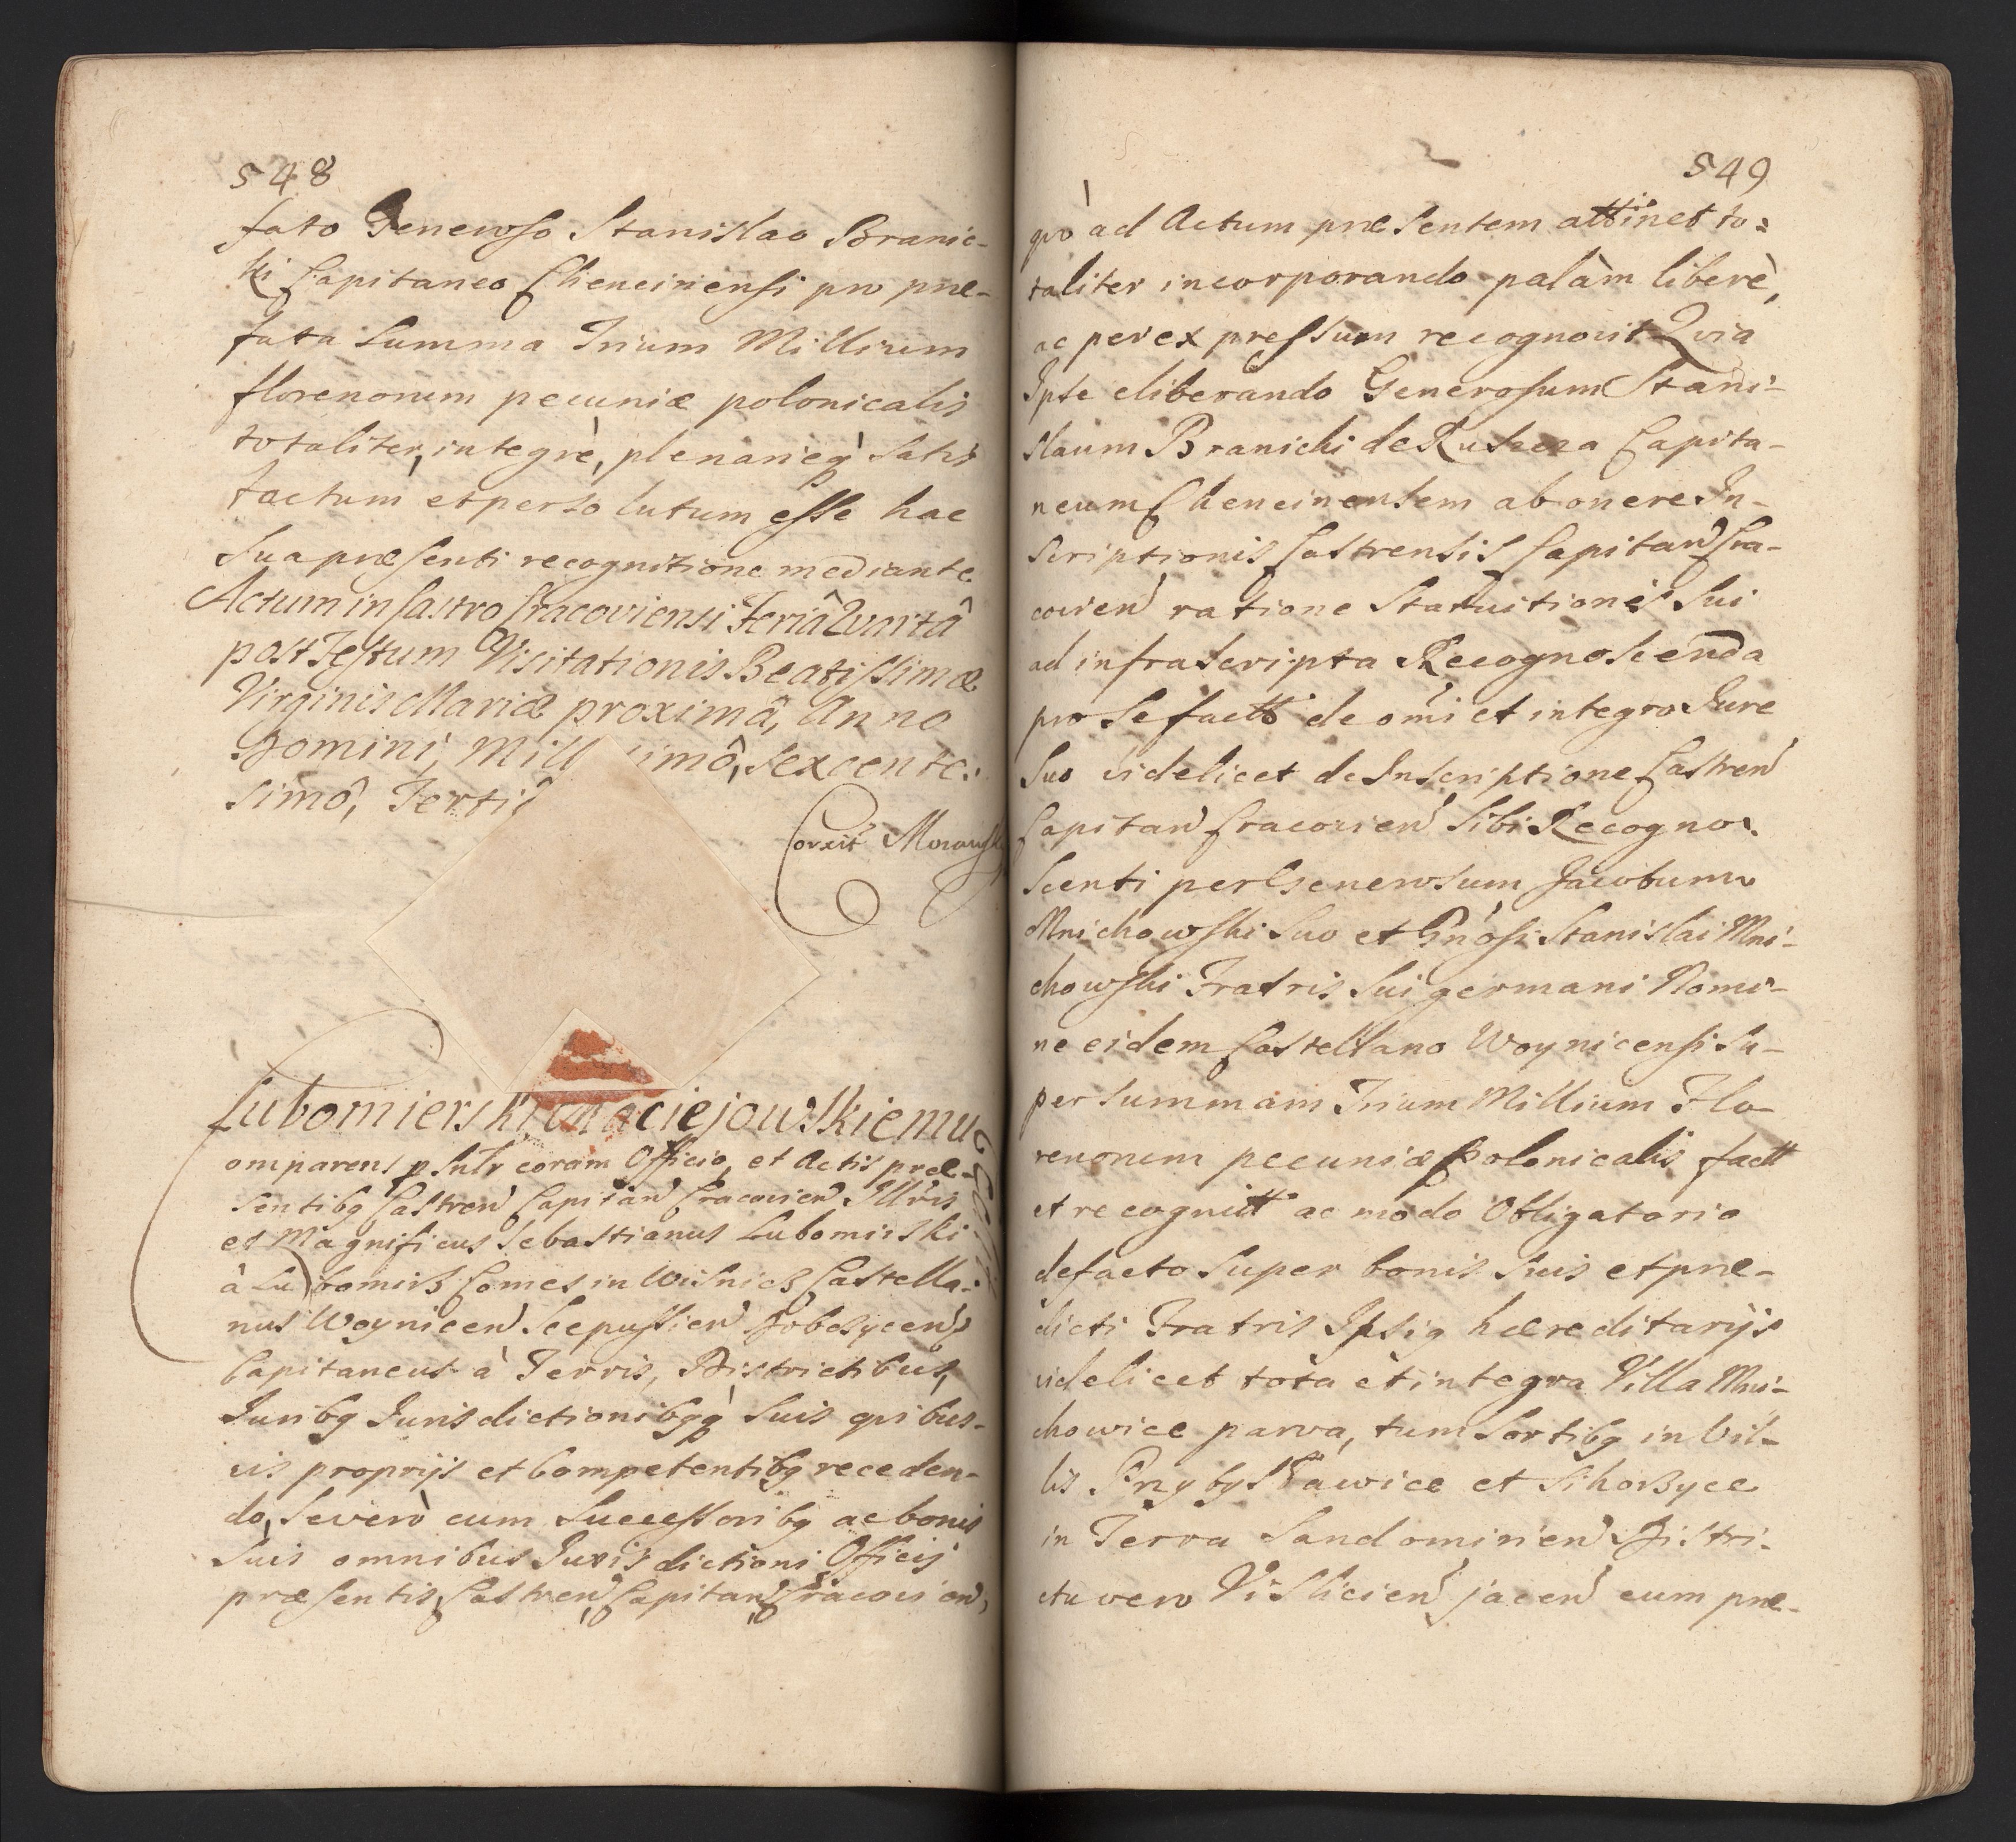 548
fato Generoso Stanislao Branic-
ki Capitaneo Chencinensi pro præ-
fata Summa Trium Millium
florenorum pecuniæ polonicalis
totaliter, integrè, plenarieq́ satis
factum et persolutum esse hac
Sua præsenti recognitione mediante
Actum in Castro Cracoviensi Feriâ Quartâ
post Festum Visitationis Beatissimæ
Virginis Mariæ proximâ, Anno
Domini, Mill simô, sexcente:
simô, Tertiô
Corxit Morawski
Lubomierski Maciejowskiemu
Comparens pSnlr coram Officio, et Actis præ-
sentibq Castren Capitan Cracovien Illris
et Magnificus Sebastianus Lubomirski
à Lubomirz Comes in Wisnicz Castella-
nus Woynicen Scepussien Dobczycen
Capitaneus à Terris, Districtibus,
Juribq Jurisdictionibqq́ Suis quibus-
vis proprijs et Competentibq receden-
do, Se verò cum Successoribq ac bonis
Suis omnibus Jurisdictioni Officij
præsentis, Castren, Capitan, Cracovien,
549
quò ad Actum præsentem attinet to:
taliter incorporando palàm liberè,
ac per expressum recognovit Quia
Ipse eliberando Generosum Stani-
slaum Branicki de Ruscza Capita-
neum Chencinensem ab onere In-
scriptionis Castrensis Capitan Cra-
covien ratione Statuitionis Sui
ad infrascripta Recognoscenda
pro Se factt de omi et integro Jure
Suo videlicet de Inscriptione Castren
Capitan Cracovien Sibi Recogno:
Scenti per Generosum Jacobum
Mnichowski Suo et Gnosi Stanislai Mni-
chowski Fratris Sui germani Nomi-
ne eidem Castellano Woynicensi Su-
per Summam Trium Millium Flo-
renorum pecuniæ Polonicalis factt
et recognitt ac modo Obligatorio
defacto Super bonis Suis et præ-
dicti Fratris Ipsiq hæreditarijs
videlicet tota et integra Villa Mni-
chowice parva, tum Sortibq in Vil-
lis Przybysławice et Sihorzyce
in Terra Sandomirien Distri-
ctu vero Vislicien jacen cum præ-